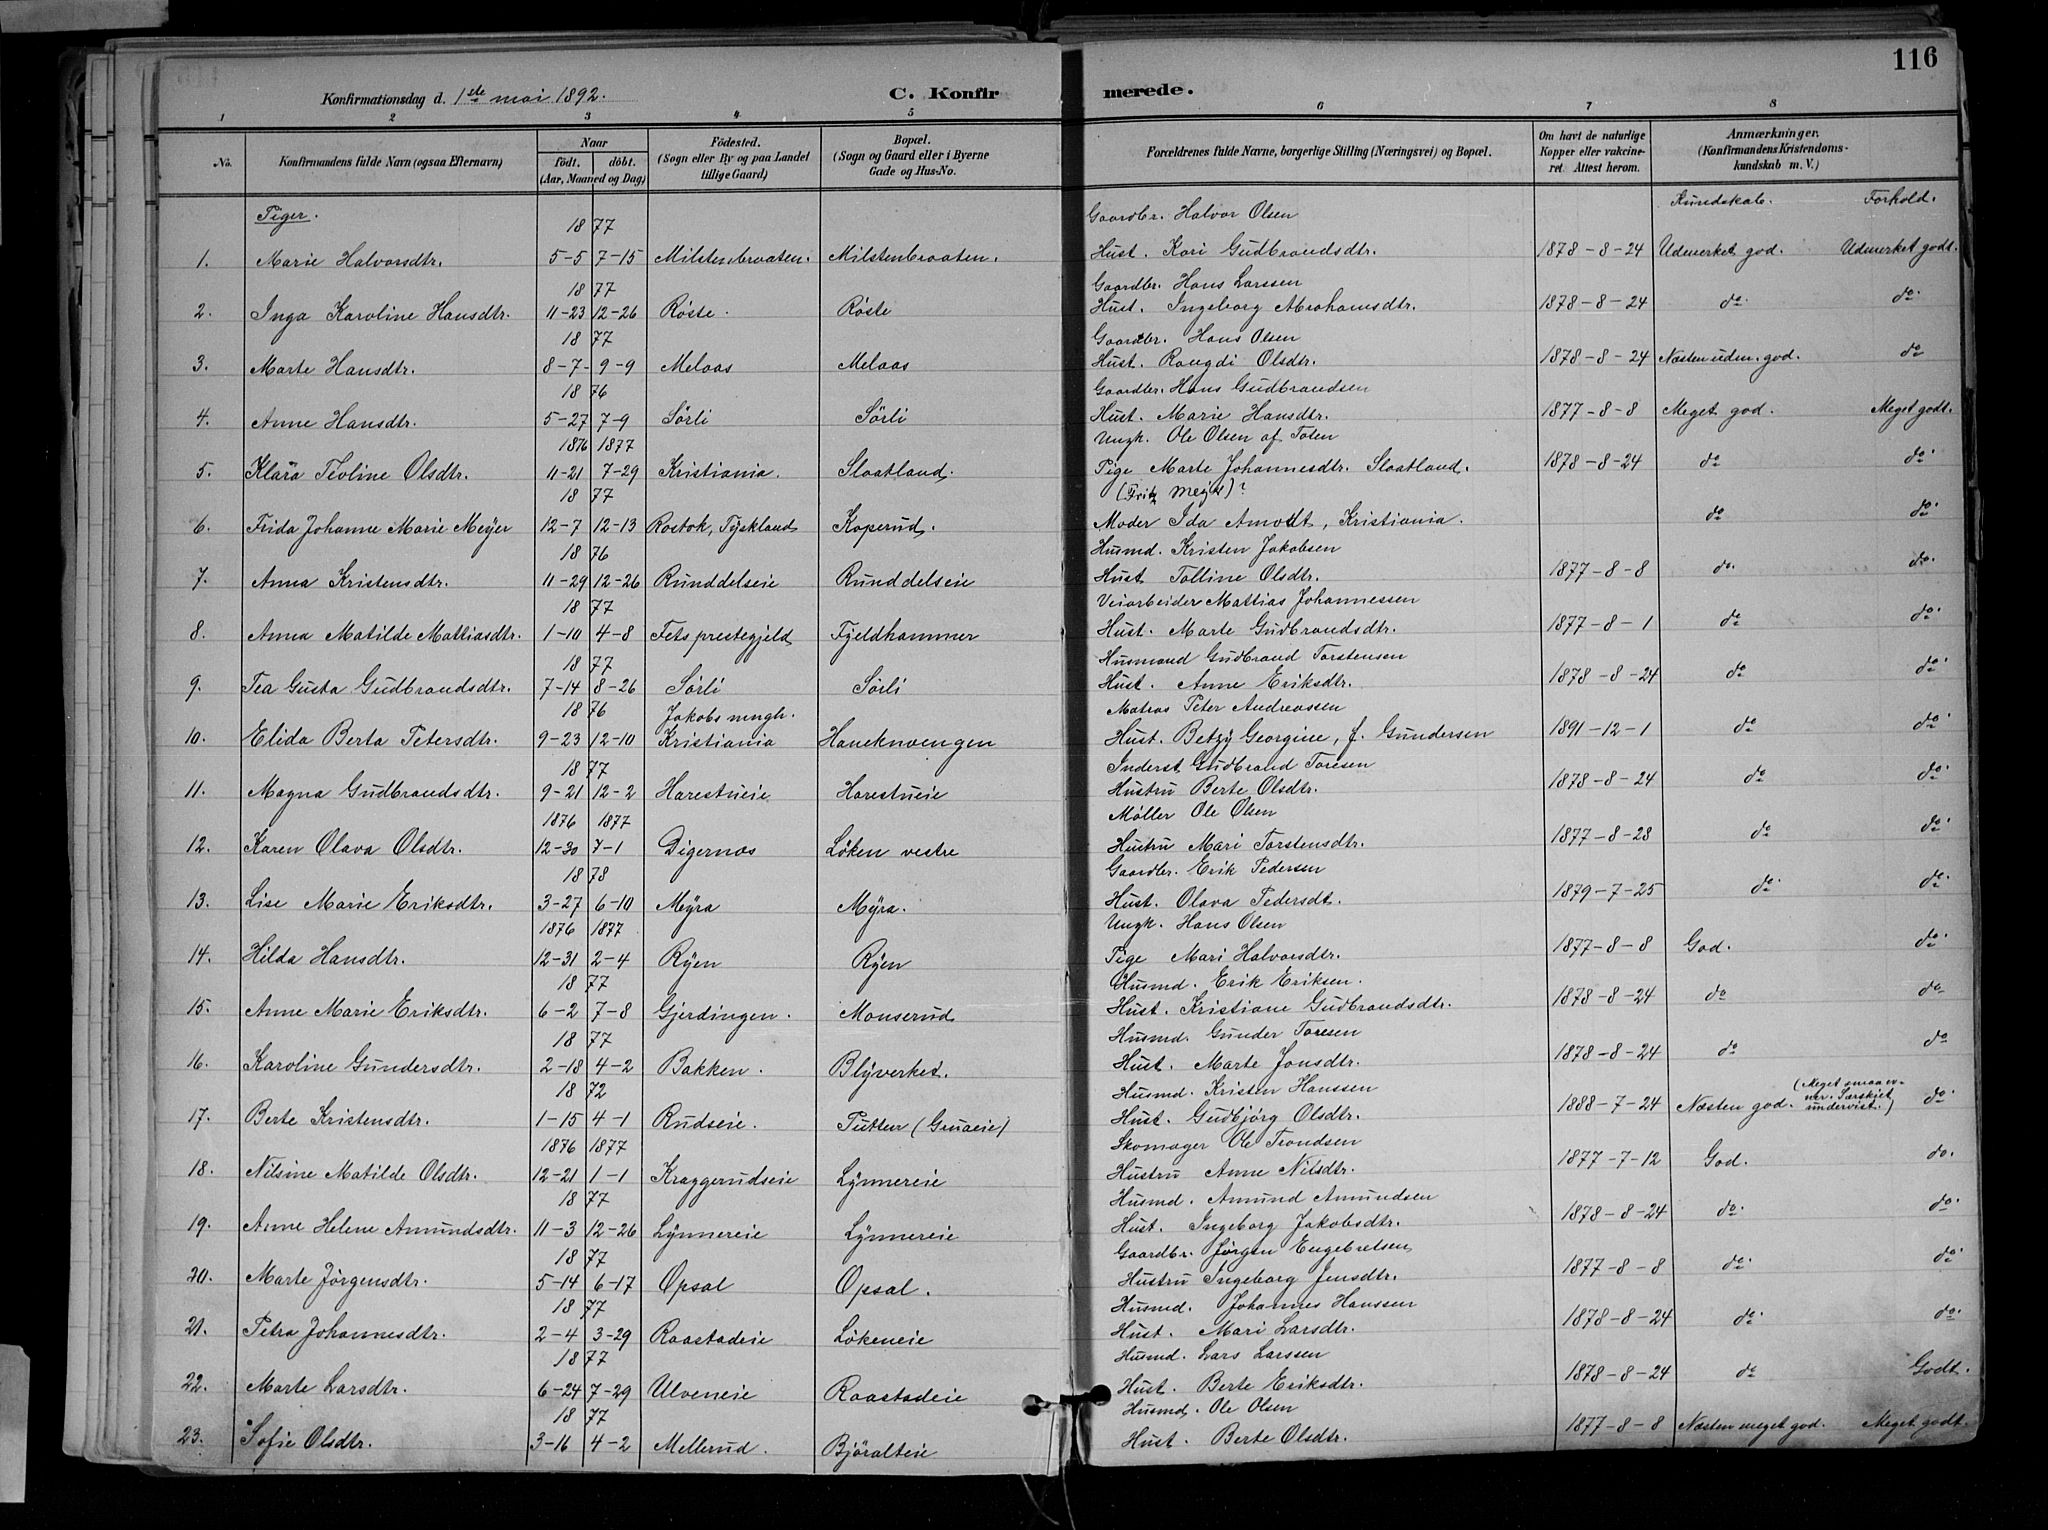 116
Konfirmationsdag d. 1ste mai 1892. C. Konfirmerede.
1 2 3 4 5 6 7 8
No. Konfirmandens fulde Navn (ogsaa Efternavn) Naar født. døbt. (Aar, Maaned og Dag) Fødested. (Sogn eller By og paa Landet tillige Gaard) Bopæl. (Sogn og Gaard eller i Byerne Gade og Hus-No. Forældrenes fulde Navne, borgerlige Stilling (Næringsvei) og Bopæl. Om havt de naturlige Kopper eller vakcineret. Attest herom. Anmærkninger. (Konfirmandens Kristendomskundskab m. V.)
Piger. Kundskab. Forhold.
1877 Gaardbr. Halvor Olsen
1. Marie Halvorsdtr. 5-5 7-15 Milstenbraaten. Milstenbraaten. Hust. Kari Gudbrandsdtr. 1878-8-24 Udmerket god. Udmerket godt.
1877 Gaardbr. Hans Larssen
2. Inga Karoline Hansdtr. 11-23 12-26 Røste. Røste Hust. Ingeborg Abrahamsdtr. 1878-8-24 do. do.
1877 Gaardbr. Hans Olsen
3. Marte Hansdtr. 8-7- 9-9 Melaas Melaas Hust. Rangdi Olsdtr. 1878-8-24 Næsten udm. god. do
1876 Gaardbr. Hans Gudbrandsen
4. Anne Hansdtr. 5-27 7-9 Sørli Sørli Hust. Marie Hansdtr. 1877-8-8 Meget god. Meget godt.
1876 1877 Ungk. Ole Olsen af Toten
5. Klara Teoline Olsdtr. 11-21 7-29 Kristiania. Slaatland. Pige Marte Johannesdtr. Slaatland. 1878-8-24 do do.
1877 (Fritz Mejer)?
6. Frida Johanne Marie Meyer 12-7 12-13 Rostok, Tyskland Koperud. Moder Ida Amodt, Kristiania. do do.
1876 Husmd. Kristen Jakobsen
7. Anna Kristensdtr. 11-29 12-26 Runddelseie Runddelseie Hust. Tolline Olsdtr. 1877-8-8 do. do.
1877 Veiarbeider Mattias Johannessen
8. Anna Matilde Mattiasdtr. 1-10 4-8 Fets prestegjeld Fjeldhammer Hust. Marte Gudbrandsdtr. 1877-8-1 do do.
1877 Husmand Gudbrand Torstensen
9. Tea Gusta Gudbrandsdtr. 7-14 8-26 Sørli Sørli Hust. Anne Eriksdtr. 1878-8-24 do do.
1876 Jakobs mngh. Matros Peter Andreassen
10. Elida Berta Petersdtr. 9-23 12-10 Kristiania Haneknævengen Hust. Betzy Georgine, f. Gundersen 1891-12-1 do do.
1877 Inderst Gudbrand Toresen
11. Magna Gudbrandsdtr. 9-21 12-2 Harestueie Harestueie Hustru Berte Olsdtr. 1878-8-24 do do.
1876 1877 Møller Ole Olsen
12. Karen Olava Olsdtr. 12-30 7-1 Digernæs Løken vestre Hustru Mari Torstensdtr. 1877-8-28 do do.
1878 Gaardbr. Erik Pedersen
13. Lise Marie Eriksdtr. 3-27 6-10 Myra Myra. Hust. Olava Pedersdt. 1879-7-25 do do.
1876 1877 Ungk. Hans Olsen
14. Hilda Hansdtr. 12-31 2-4 Ryen Ryen Pige Mari Halvorsdtr. 1877-8-8 God. do.
1877 Husmd. Erik Eriksen.
15. Anne Marie Eriksdtr. 6-2 7-8 Gjerdingen. Monserud Hust. Kristiane Gudbrandsdtr. 1878-8-24 do do
1877 Husmd. Gunder Toresen
16. Karoline Gundersdtr. 2-18 4-2 Bakken. Blyverket. Hust. Marte Jonsdtr. 1878-8-24 do do
1872 Husmd. Kristen Hanssen
17. Berte Kristensdtr. 1-15 4-1 Rudseie. Putten (Gruaeie) Hust. Gudbjørg Olsdtr. 1888-7-24 Næsten god. (Meget smaa evner. Særskilt undervist.) do.
1876 1877 Skomager Ole Trondsen
18. Nilsine Matilde Olsdtr. 12-21 1-1 Kraggerudseie Lynnereie Hustru Anne Nilsdtr. 1877-7-12 God. do.
1877 Husmd. Amund Amundsen
19. Anne Helene Amundsdtr. 11-3 12-26 Lynnereie Lynnereie Hust. Ingeborg Jakobsdtr. 1878-8-24 do. do.
1877 Gaardbr. Jørgen Engebretsen
20. Marte Jørgensdtr. 5-14 6-17 Opsal Opsal. Hustru Ingeborg Jensdtr. 1877-8-8 do. do.
1877 Husmd. Johannes Hanssen
21. Petra Johannesdtr. 2-4 3-29 Raastadeie Løkeneie Hust. Mari Larsdtr. 1878-8-24 do. do.
1877 Husmd. Lars Larssen
22. Marte Larsdtr. 6-24 7-29 Ulveneie Raastadeie Hust. Berte Eriksdtr. 1878-8-24 do Godt.
1877 Husmd. Ole Olsen
23. Sofie Olsdtr. 3-16 4-2 Mellerud. Bjøralteie Hust. Berte Olsdtr. 1877-8-8 Næsten meget god. Meget godt.